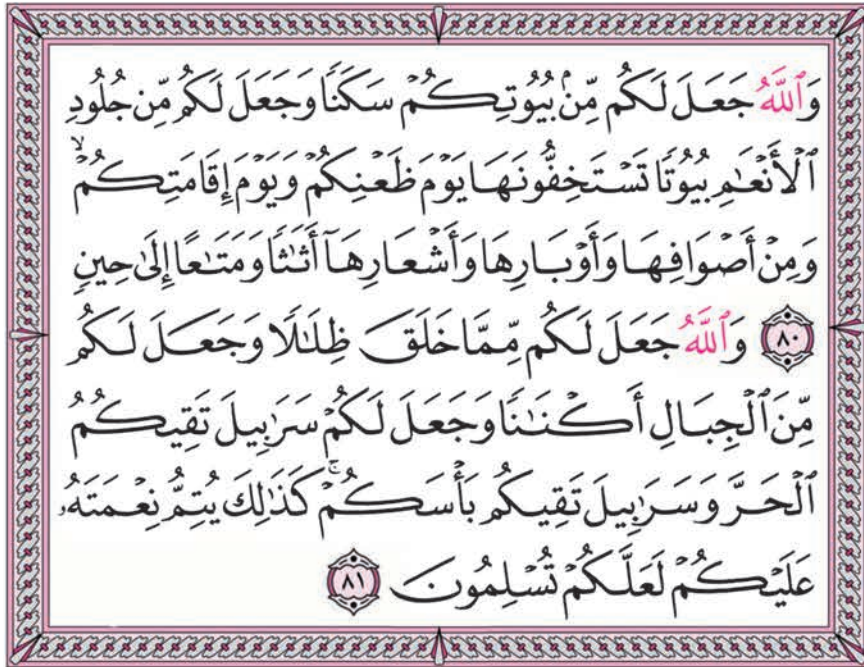 وَٱللَّهُ جَعَلَ لَكُم مِّنۢ بُيُوتِكُمۡ سَكَنٗا وَجَعَلَ لَكُم مِّن جُلُودِ
ٱلۡأَنۡعَٰمِ بُيُوتٗا تَسۡتَخِفُّونَهَا يَوۡمَ ظَعۡنِكُمۡ وَيَوۡمَ إِقَامَتِكُمۡۙ
وَمِنۡ أَصۡوَافِهَا وَأَوۡبَارِهَا وَأَشۡعَارِهَآ أَثَٰثٗا وَمَتَٰعًا إِلَىٰ حِينٖ
٨٠ وَٱللَّهُ جَعَلَ لَكُم مِّمَّا خَلَقَ ظِلَٰلٗا وَجَعَلَ لَكُم
مِّنَ ٱلۡجِبَالِ أَكۡنَٰنٗا وَجَعَلَ لَكُمۡ سَرَٰبِيلَ تَقِيكُمُ
ٱلۡحَرَّ وَسَرَٰبِيلَ تَقِيكُم بَأۡسَكُمۡۚ كَذَٰلِكَ يُتِمُّ نِعۡمَتَهُۥ
عَلَيۡكُمۡ لَعَلَّكُمۡ تُسۡلِمُونَ ٨١